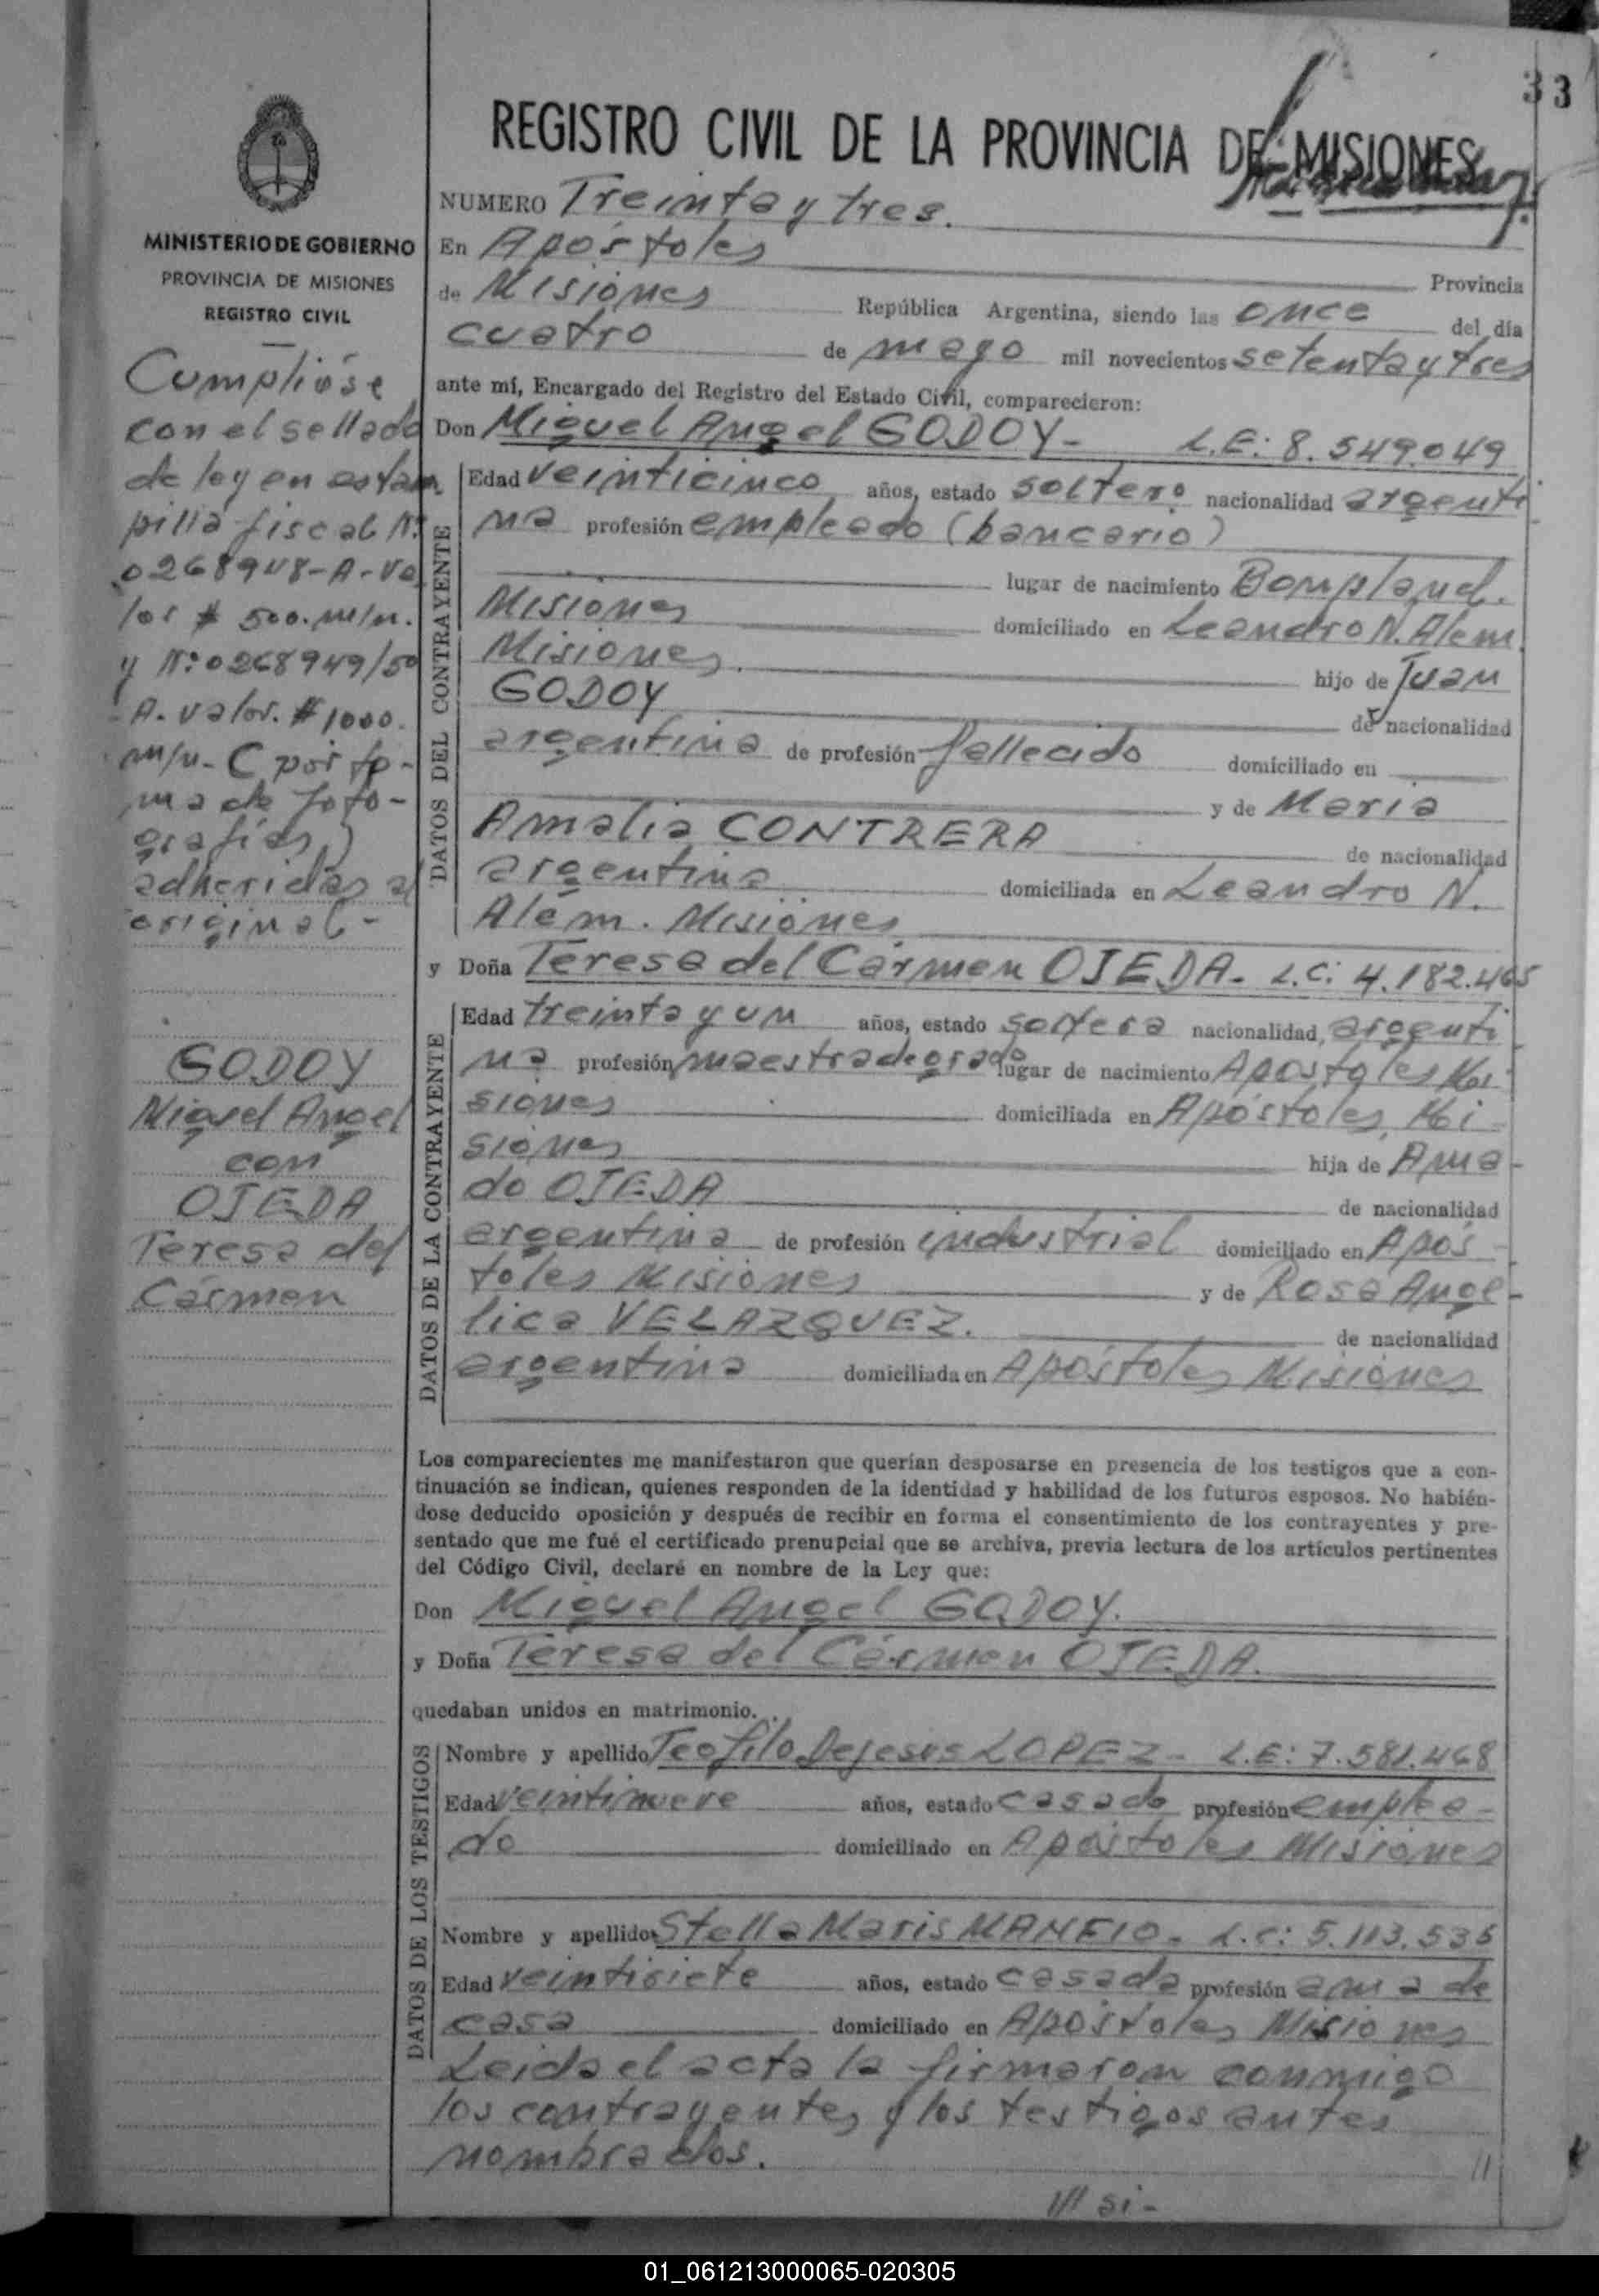 33
REGISTRO CIVIL DE LA PROVINCIA DE MISIONES
NUMERO Treinta y tres.
MINISTERIO DE GOBIERNO
PROVINCIA DE MISIONES
REGISTRO CIVIL
En Apóstoles Provincia
de Misiones República Argentina, siendo las once del día
cuatro de mayo mil novecientos setenta y tres
ante mí, Encargado del Registro del Estado Civil, comparecieron:
Cumplióse
con el sellado
de ley en estam
pilla fiscal Nº
0268948-A-Va
lor $ 500.m/n.
y Nº 0268949/50
-A. valor. $ 1000.
m/n- C por to-
ma de foto-
grafías)
adheridas al
original-
GODOY
Miguel Angel
con
OJEDA
Teresa del
Cármen
Don Miguel Angel GODOY- L.E: 8.549.049
DATOS DEL CONTRAYENTE
Edad veinticinco años, estado soltero nacionalidad argenti
na profesión empleado (bancario)
lugar de nacimiento Bompland.
Misiones domiciliado en Leandro N. Alem
Misiones. hijo de Juan
GODOY de nacionalidad
argentina de profesión fallecido domiciliado en
y de Maria
Amalia CONTRERA de nacionalidad
argentina domiciliada en Leandro N.
Alem. Misiones
y Doña Teresa del Cármen OJEDA- L.C: 4.182.465
DATOS DE LA CONTRAYENTE
Edad treinta y un años, estado soltera nacionalidad, argenti
na profesión maestra de grado lugar de nacimiento Apostoles Mi
siones domiciliada en Apóstoles, Mi-
siones hija de Ama-
do OJEDA de nacionalidad
argentina de profesión industrial domiciliado en Após-
toles Misiones y de Rosa Ange-
lica VELAZQUEZ. de nacionalidad
argentina domiciliada en Apóstoles Misiones
Los comparecientes me manifestaron que querían desposarse en presencia de los testigos que a con-
tinuación se indican, quienes responden de la identidad y habilidad de los futuros esposos. No habién-
dose deducido oposición y después de recibir en forma el consentimiento de los contrayentes y pre-
sentado que me fué el certificado prenupcial que se archiva, previa lectura de los artículos pertinentes
del Código Civil, declaré en nombre de la Ley que:
Don Miguel Angel GODOY.
y Doña Teresa del Cármen OJEDA.
quedaban unidos en matrimonio.
DATOS DE LOS TESTIGOS
Nombre y apellido Teofilo Dejesus LOPEZ- L.E: 7.581.468
Edad veintinueve años, estado casado profesión emplea-
do domiciliado en Apóstoles Misiones
Nombre y apellido Stella Maris L.C: 5.113.535
Edad veintisiete años, estado casada profesión ama de
casa domiciliado en Apóstoles Misiones
Leida el acta la firmaron conmigo
los contrayentes y los testigos antes
nombrados.
///si-
01_061213000065-020305